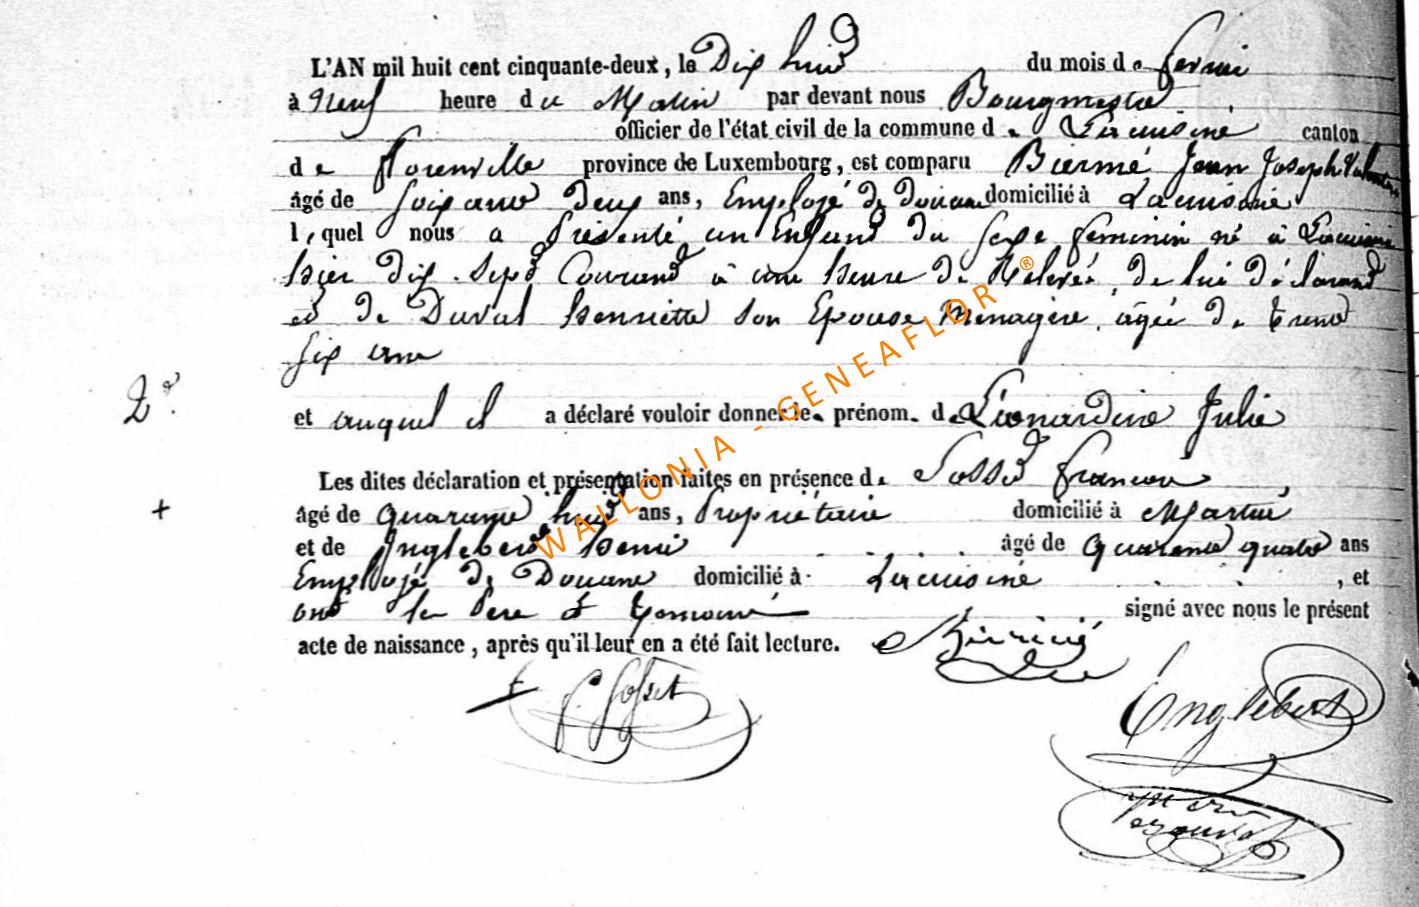 L'AN mil huit cent cinquante-deux, le Dix huit du mois de fevrier
à Neuf heure du Matin par devant nous Bourgmestre
officier de l'état civil de la commune de Lacuisine canton
de florenville province de Luxembourg, est comparu Biermé Jean Joseph Valentin
âgé de Soixante Deux ans, Employé de Douane domicilié à Lacuisine
lequel nous a Présenté un Enfant du Sexe feminin né à Lacuisine
hier dix Sept Courant à une heure de Relevée, de lui déclarant
et de Duval henriette son Epouse Menagère, agée de trente
Six ans
2e.
et auquel il a déclaré vouloir donner le prénom de Léonardine Julie
Les dites déclaration et présentation faites en présence de Sosset francois
+
âgé de quarante huit ans, Propriétaire domicilié à Martué
et de Inglebert henri âgé de quarante quatre ans
Employé de Douane domicilié à Lacuisine, et
ont le Pere et temoins signé avec nous le présent
acte de naissance, après qu'il leur en a été fait lecture. Biermé
f. Sosset
Englebert
WALLONIA - GENEAFLOR ®